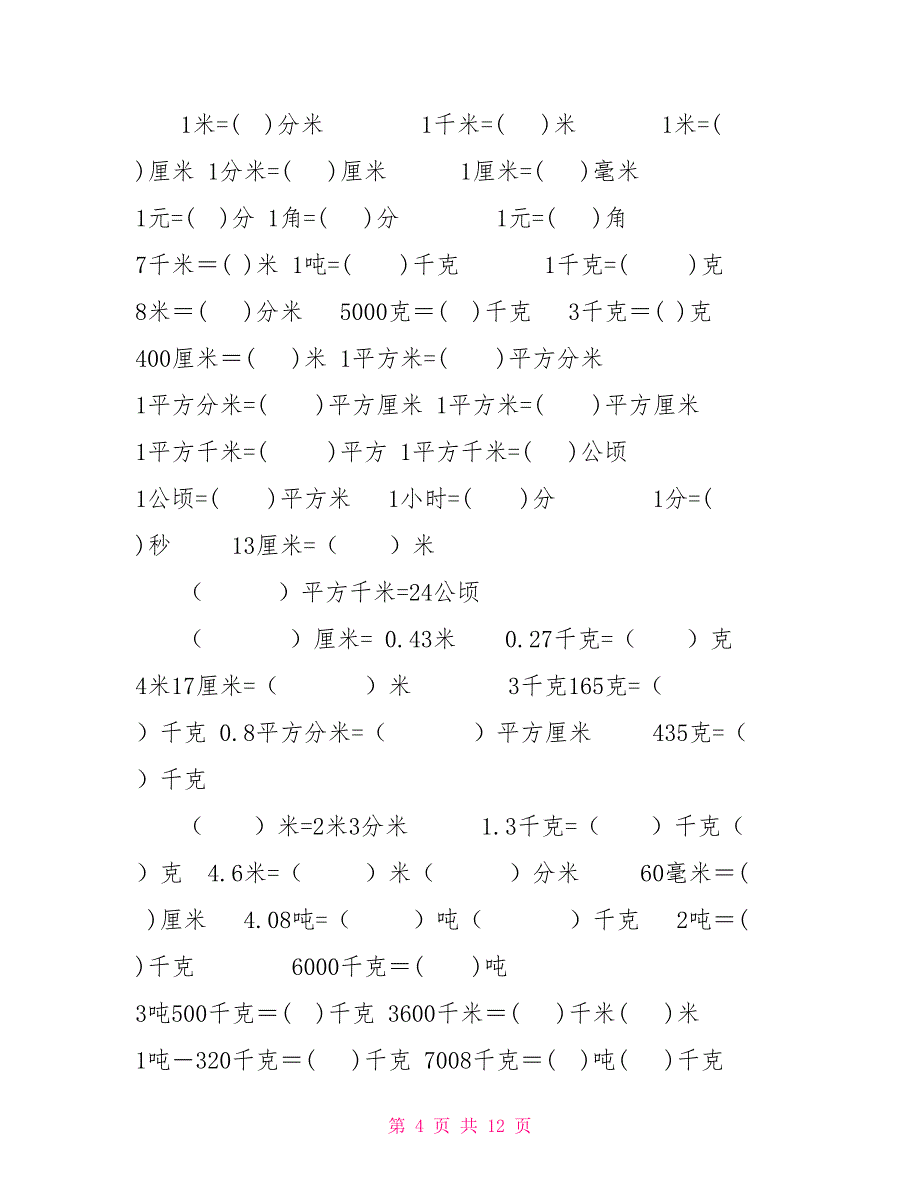 1米=( )分米 1千米=( )米 1米=(
)厘米 1分米=( )厘米 1厘米=( )毫米
1元=( )分 1角=( )分 1元=( )角
7千米＝( )米 1吨=( )千克 1千克=( )克
8米＝( )分米 5000克＝( )千克 3千克＝( )克
400厘米＝( )米 1平方米=( )平方分米
1平方分米=( )平方厘米 1平方米=( )平方厘米
1平方千米=( )平方 1平方千米=( )公顷
1公顷=( )平方米 1小时=( )分 1分=(
)秒 13厘米=（ ）米
（ ）平方千米=24公顷
（ ）厘米= 0.43米 0.27千克=（ ）克
4米17厘米=（ ）米 3千克165克=（
）千克 0.8平方分米=（ ）平方厘米 435克=（
）千克
（ ）米=2米3分米 1.3千克=（ ）千克（
）克 4.6米=（ ）米（ ）分米 60毫米＝(
)厘米 4.08吨=（ ）吨（ ）千克 2吨＝(
)千克 6000千克＝( )吨
3吨500千克＝( )千克 3600千米＝( )千米( )米
1吨－320千克＝( )千克 7008千克＝( )吨( )千克
第 4 页 共 12 页